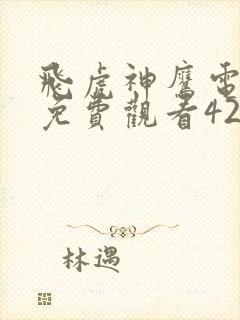 飛虎神鷹電
免費觀看42
林遇